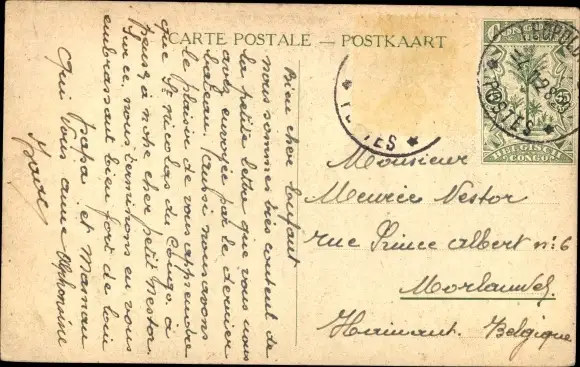 CARTE POSTALE — POSTKAART
CONGO BELGE
BELGISCH CONGO
POSTES
Bien cher Enfant
nous sommes très content de
la petite lettre que vous nous
avez envoyée par le dernier
bateau. Aussi nous avons
le plaisir de vous apprendre
que St Nicolas du Congo, à
pensé à notre cher petit Nestor.
Sur ce, nous terminons en vous
embrassant bien fort de loin
papa et Maman
Qui vous aime Alphonsine
Monsieur
Meurée Nestor
rue Prince Albert n: 6
Morlanwelz
Hainaut. Belgique